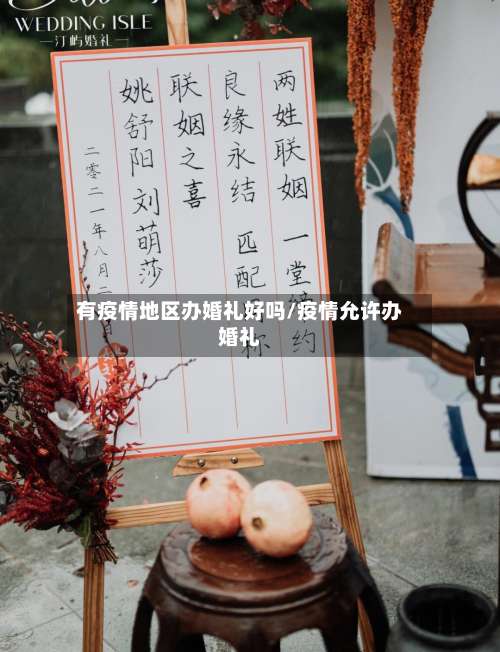 WEDDING ISLE
—汀屿婚礼—
两姓联姻 一堂缔约
良缘永结 匹配同称
联姻之喜
姚舒阳 刘萌莎
二零二一年八月二
有疫情地区办婚礼好吗/疫情允许办
婚礼